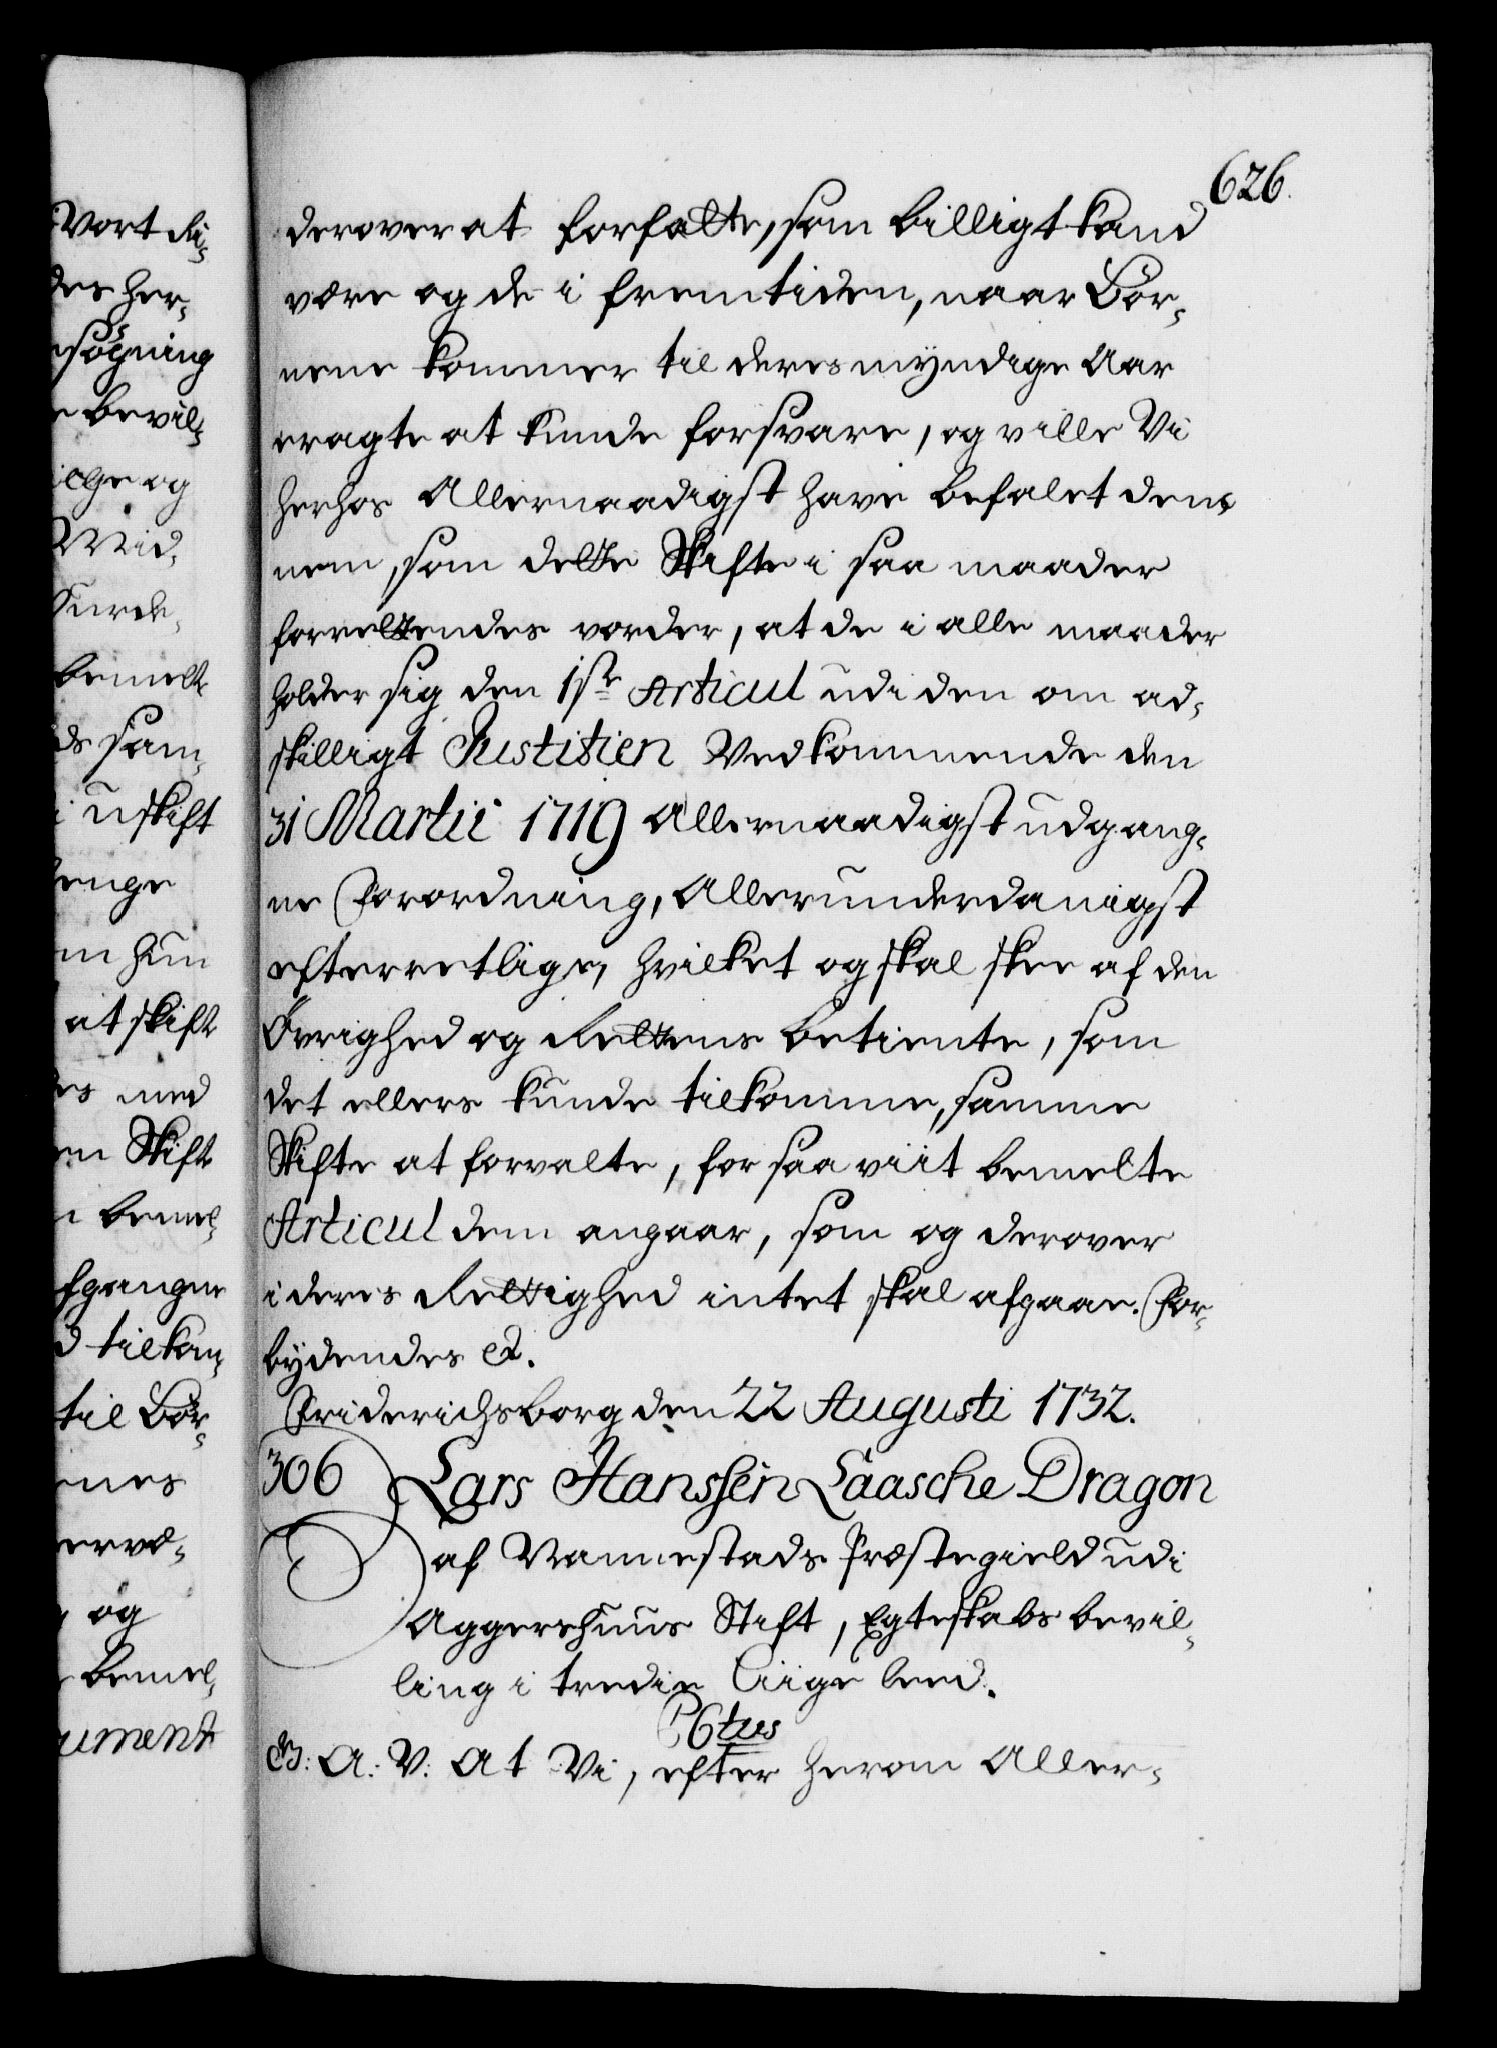 626.
deroverat forfatte, som billigt kand
være og de i fremtiden, naar Bör-
nene kommer til deres myndige Aar
eragte at kunde forsvare, og ville Vi
herhos Allernaadigst have befalet den-
nem, som dette Skifte i saa maader
forrettendes vorder, at de i alle maader
holder sig den 1ste Articul udi den om ad-
skilligt Justitien Vedkommende den
31 Martii 1719 Allernaadigst udgang-
ne Forordning, Allerunderdanigst
efterretlige, hvilket og skal skee af den
Övrighed og Rettens betiente, som
det ellers kunde tilkomme, samme
Skifte at forvalte, for saa viit bemelte
Articul dem angaar, som og derover
i deres Rettighed intet skal afgaae. For-
bydendes etc.
Friderichsborg den 22 Augusti 1732.
306 Lars Hanssen Laasche Dragon
af Vannestads Præstegield udi
Aggershuus Stift, Egteskabs bevil-
ling i tredie Liige leed.
C6tus
G: A: V: At Vi, efter herom Aller-
Vort Ri-
des her-
sögning
bevil-
og
Mid-
bemelte
sam-
i uskift
enge
hun
at skifte
med
Skifte
bemel-
afgangne
tilkom-
til Bör-
nes
og
bemel-
ument